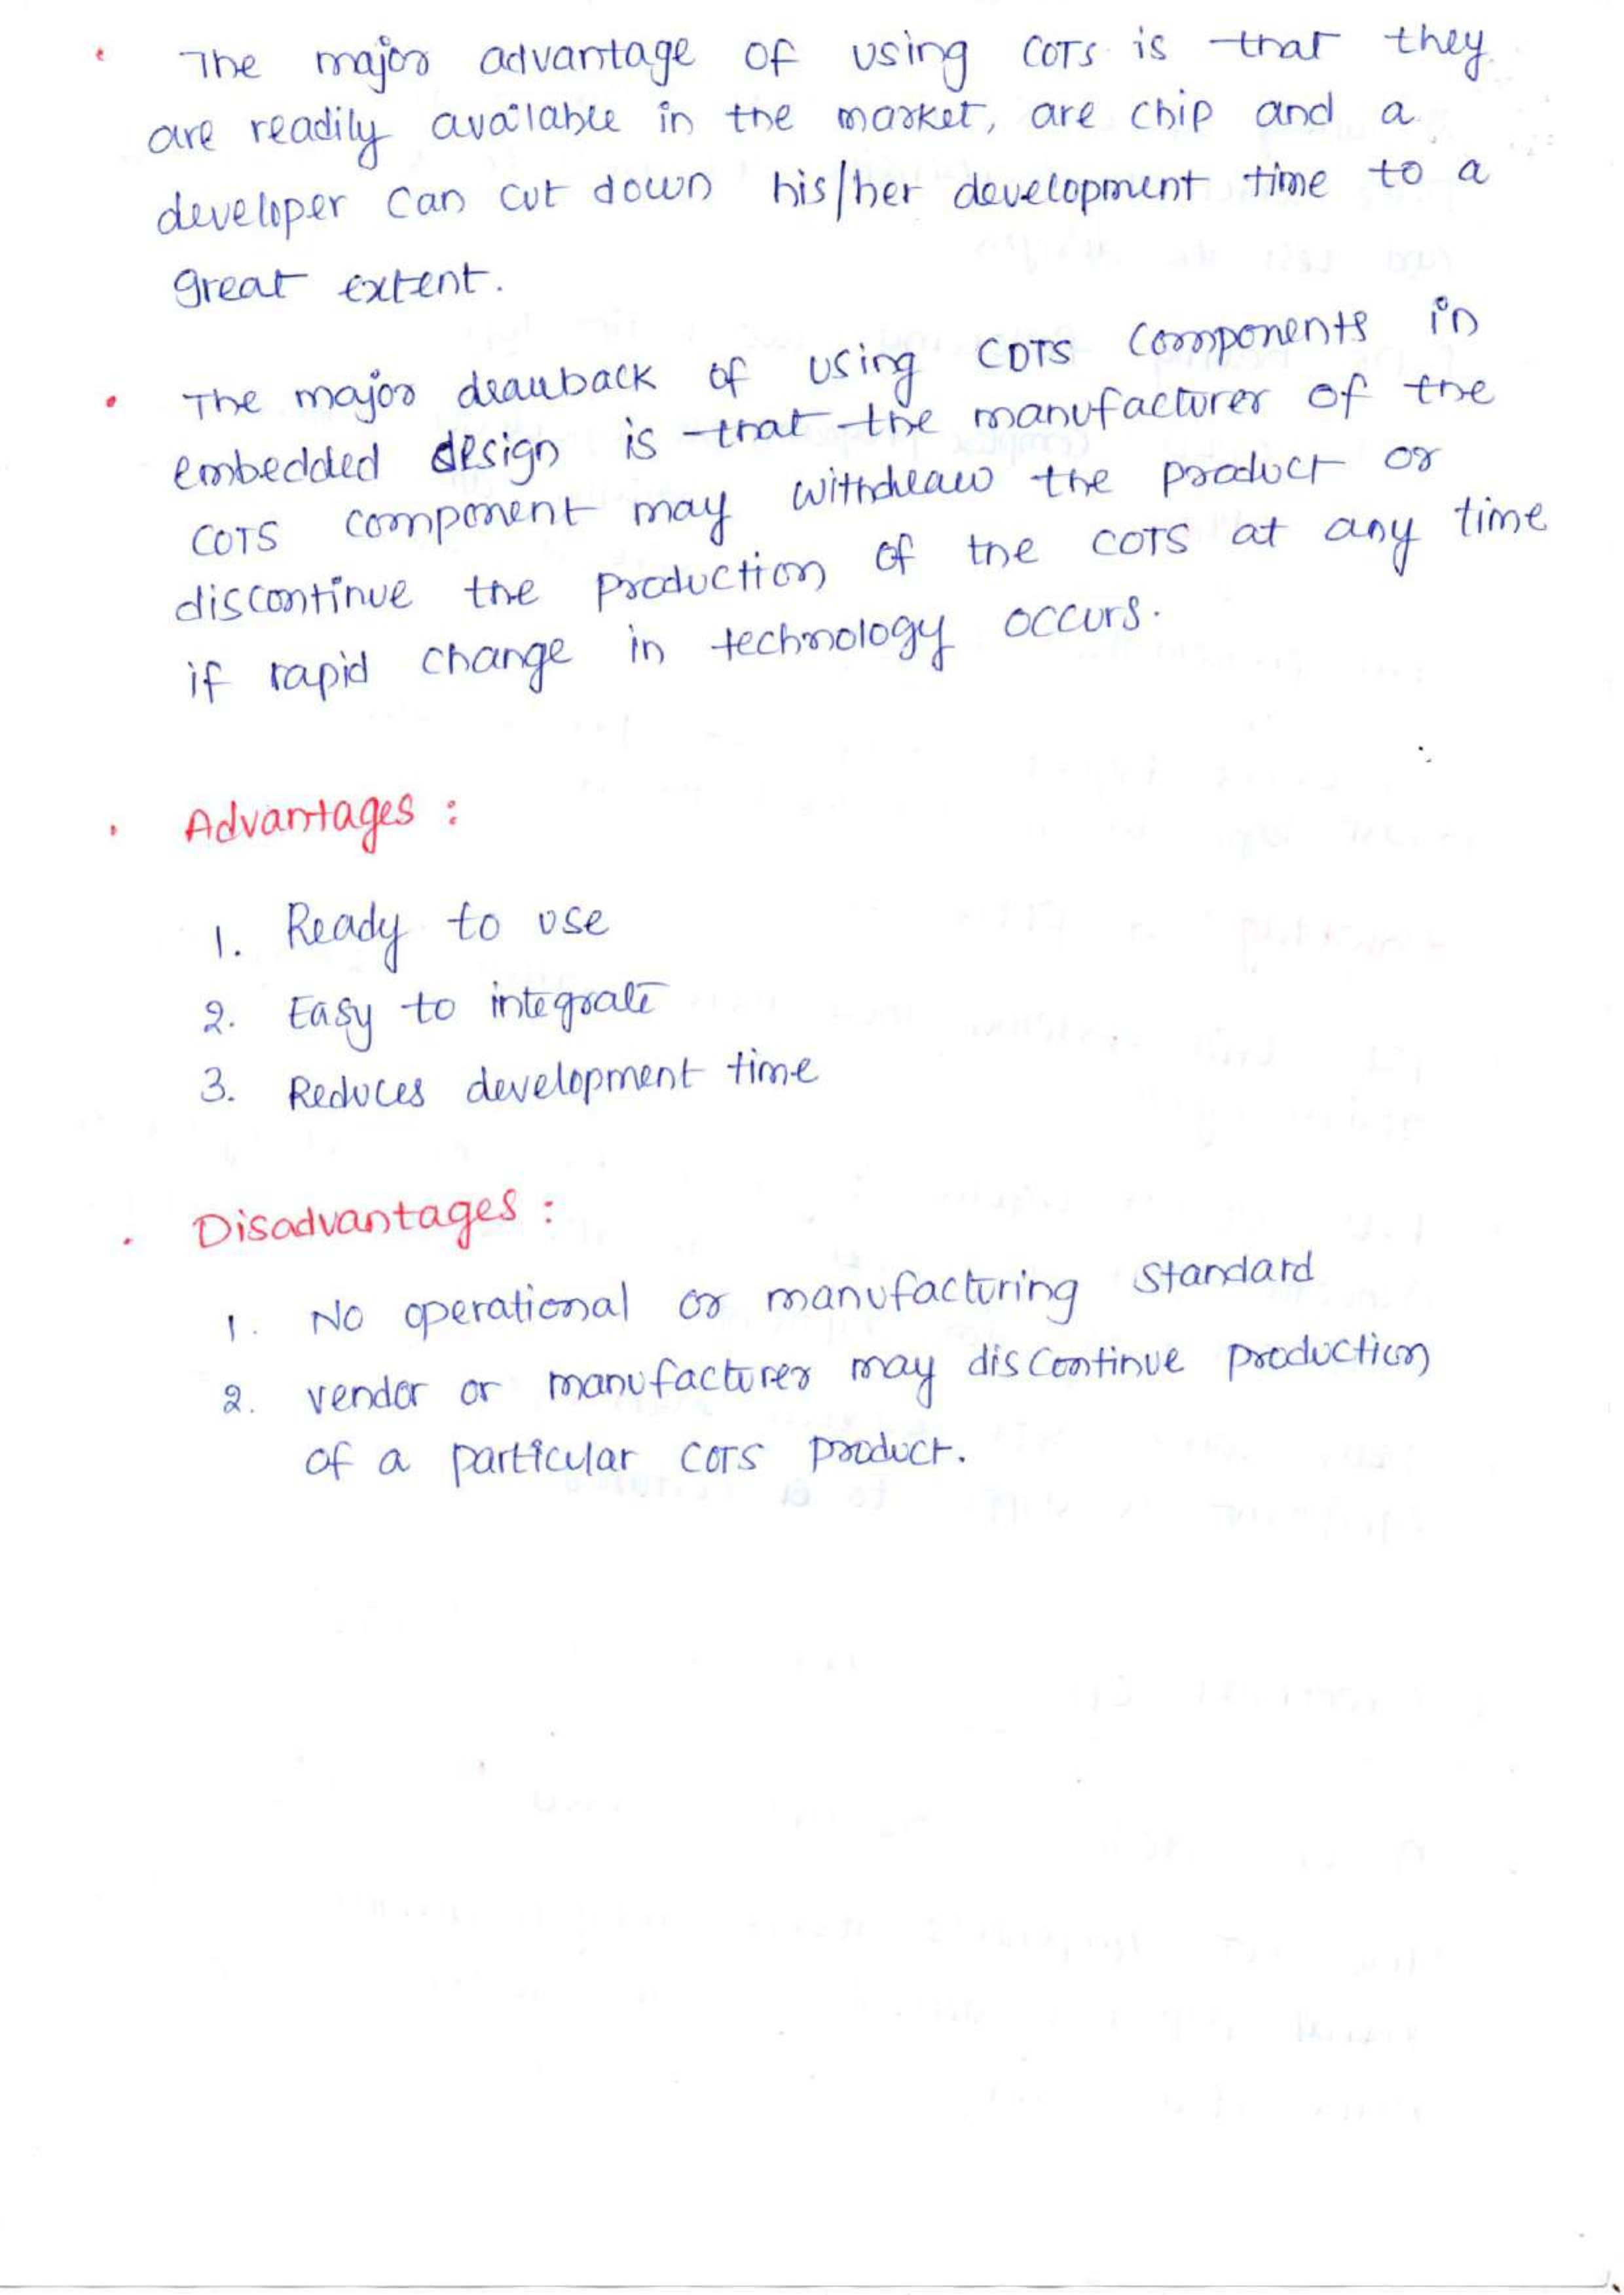 • The major advantage of using COTS is that they
are readily available in the market, are chip and a
developer can cut down his/her development time to a
great extent.
• The major drawback of using COTS components in
embedded design is that the manufacturer of the
COTS component may withdraw the product or
discontinue the production of the COTS at any time
if rapid change in technology occurs.
• Advantages :
1. Ready to use
2. Easy to integrate
3. Reduces development time
• Disadvantages :
1. No operational or manufacturing standard
2. vendor or manufacturer may discontinue production
of a particular COTS product.